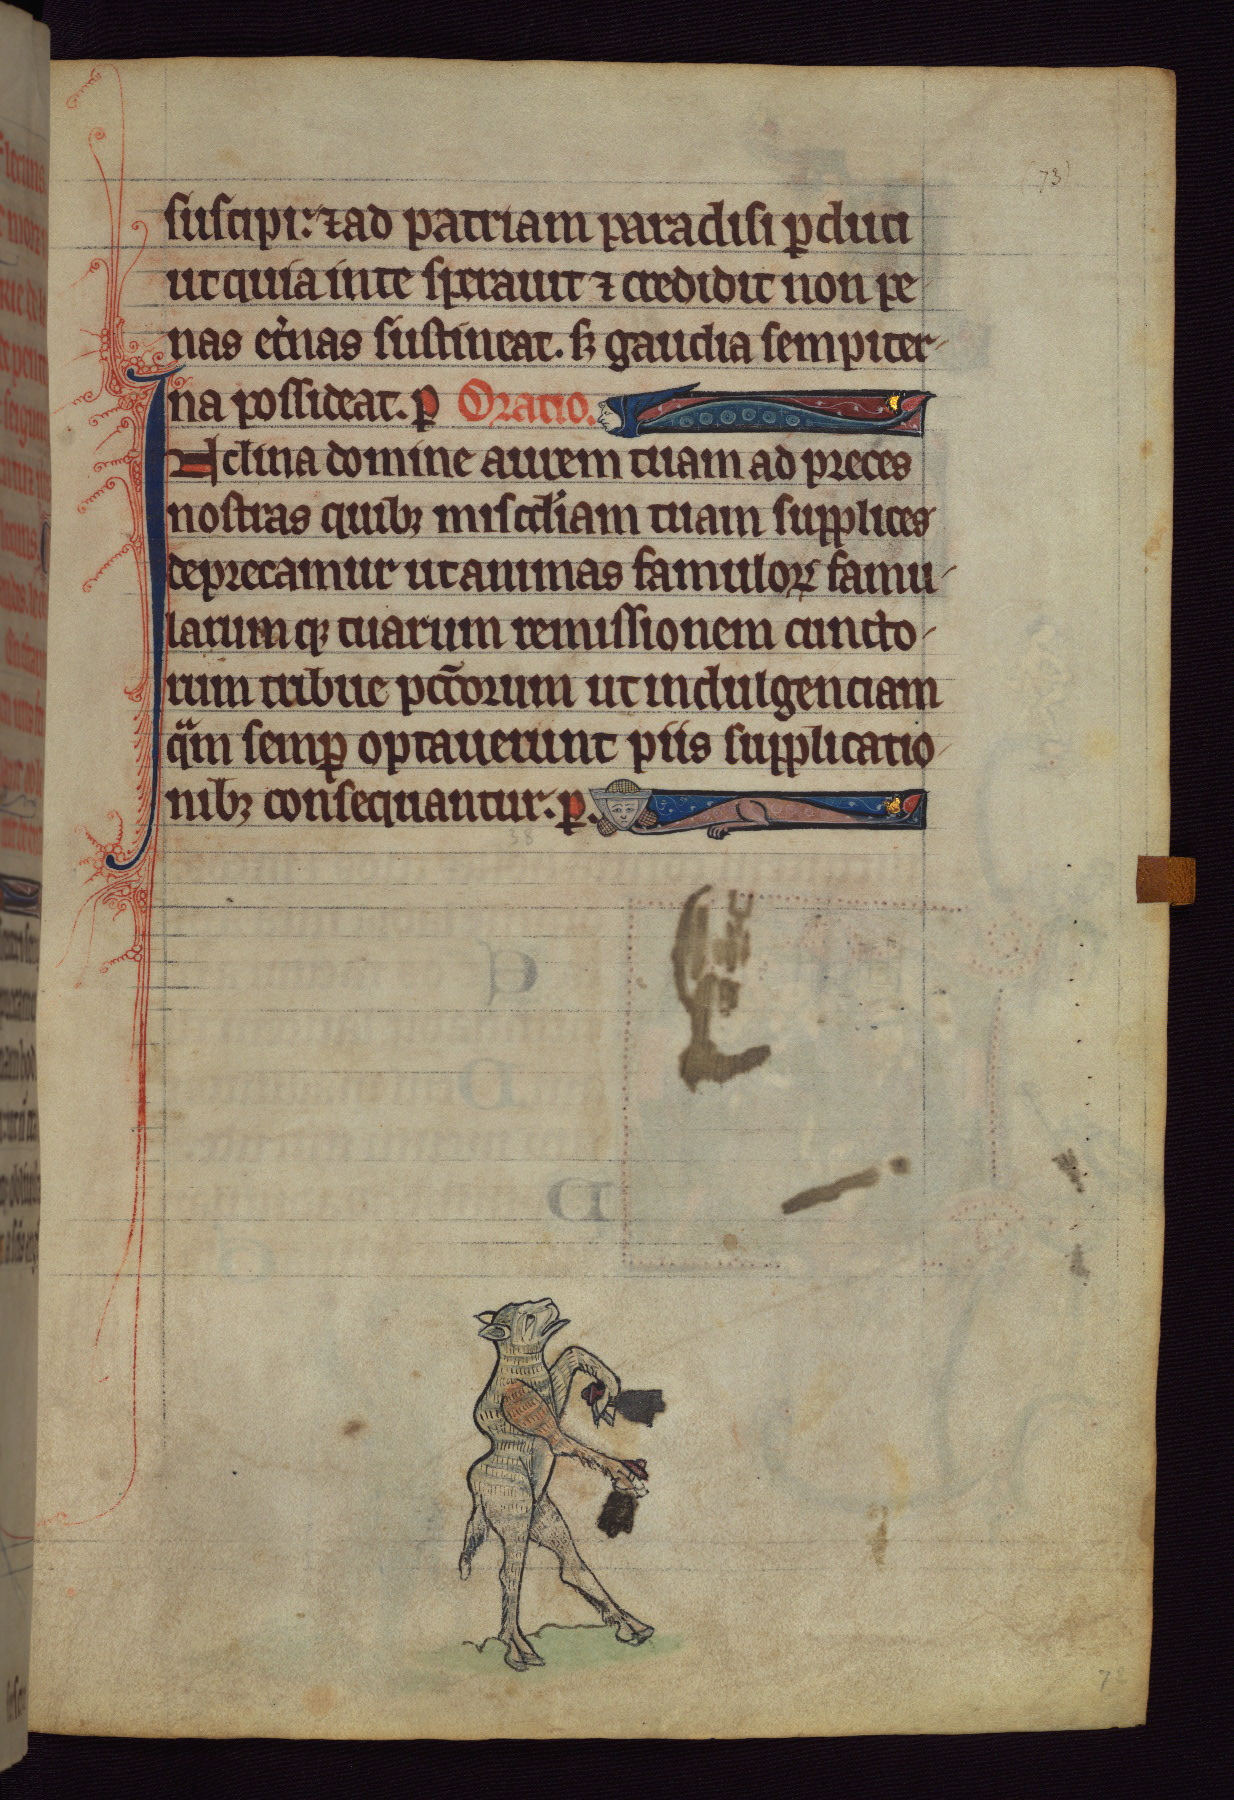 (73)
suscipi: ⁊ ad patriam paradisi ꝑduci
ut quia in te sperauit ⁊ credidit non pe
nas et̾nas sustineat. sꝫ gaudia sempiter-
na possideat. ꝑ Oratio.
Inclina domine aurem tuam ad preces
nostras quibꝫ misc̾diam tuam supplices
deprecamur ut animas famuloꝝ famu-
larumqꝫ tuarum remissionem cuncto-
rum tribue pctorum ut indulgenciam
qm semꝑ optauerunt piis supplicatio-
nibꝫ consequantur. ꝑ.
38